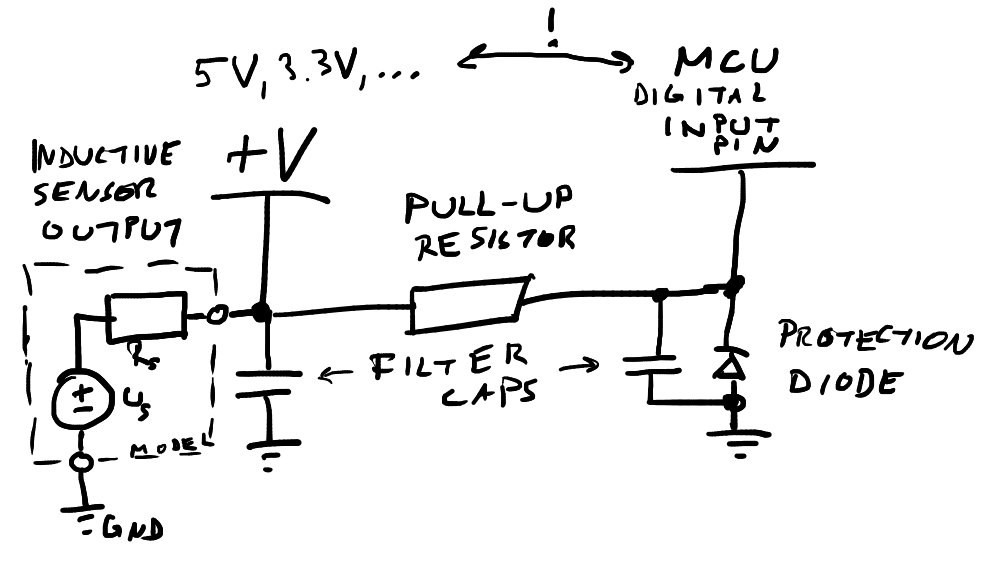 !
5V, 3.3V, ...
MCU
DIGITAL
INPUT
PIN
INDUCTIVE
SENSOR
OUTPUT
+V
PULL-UP
RESISTOR
Rs
+
Us
MODEL
GND
FILTER
CAPS
PROTECTION
DIODE